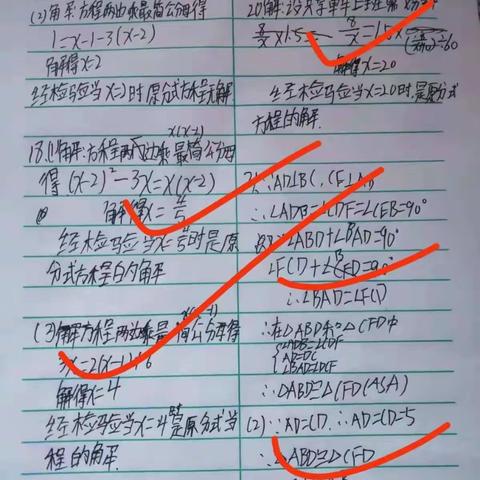 (2)解:方程两边乘最简公分母得
1=x-1-3(x-2)
解得x=2
经检验当x=2时原分式方程无解
x(x-2)
18.(1)解:方程两边乘最简公分母
得(x-2)²-3x=x(x-2)
解得x=4/5
经检验当x=4/5时是原
分式方程的解
(3)解方程两边乘最简公分母得
3x=2(x-1)+6
解得x=4
经检验当x=4时是原分式方
程的解
解得x=20
经检验应当x=20时,是原分式
方程的解
∴∠ADB=∠CDF=∠CEB=90°
∴∠ABD+∠BAD=90°
∴∠BAD=∠FCD
∴在△ABD和△CFD中
∠ADB=∠CDF
AD=DC
∠BAD=∠DCF
∴△ABD≌△CFD(ASA)
(2)∵AD=CD,∴AD=CD=5
∴△ABD≌△CFD